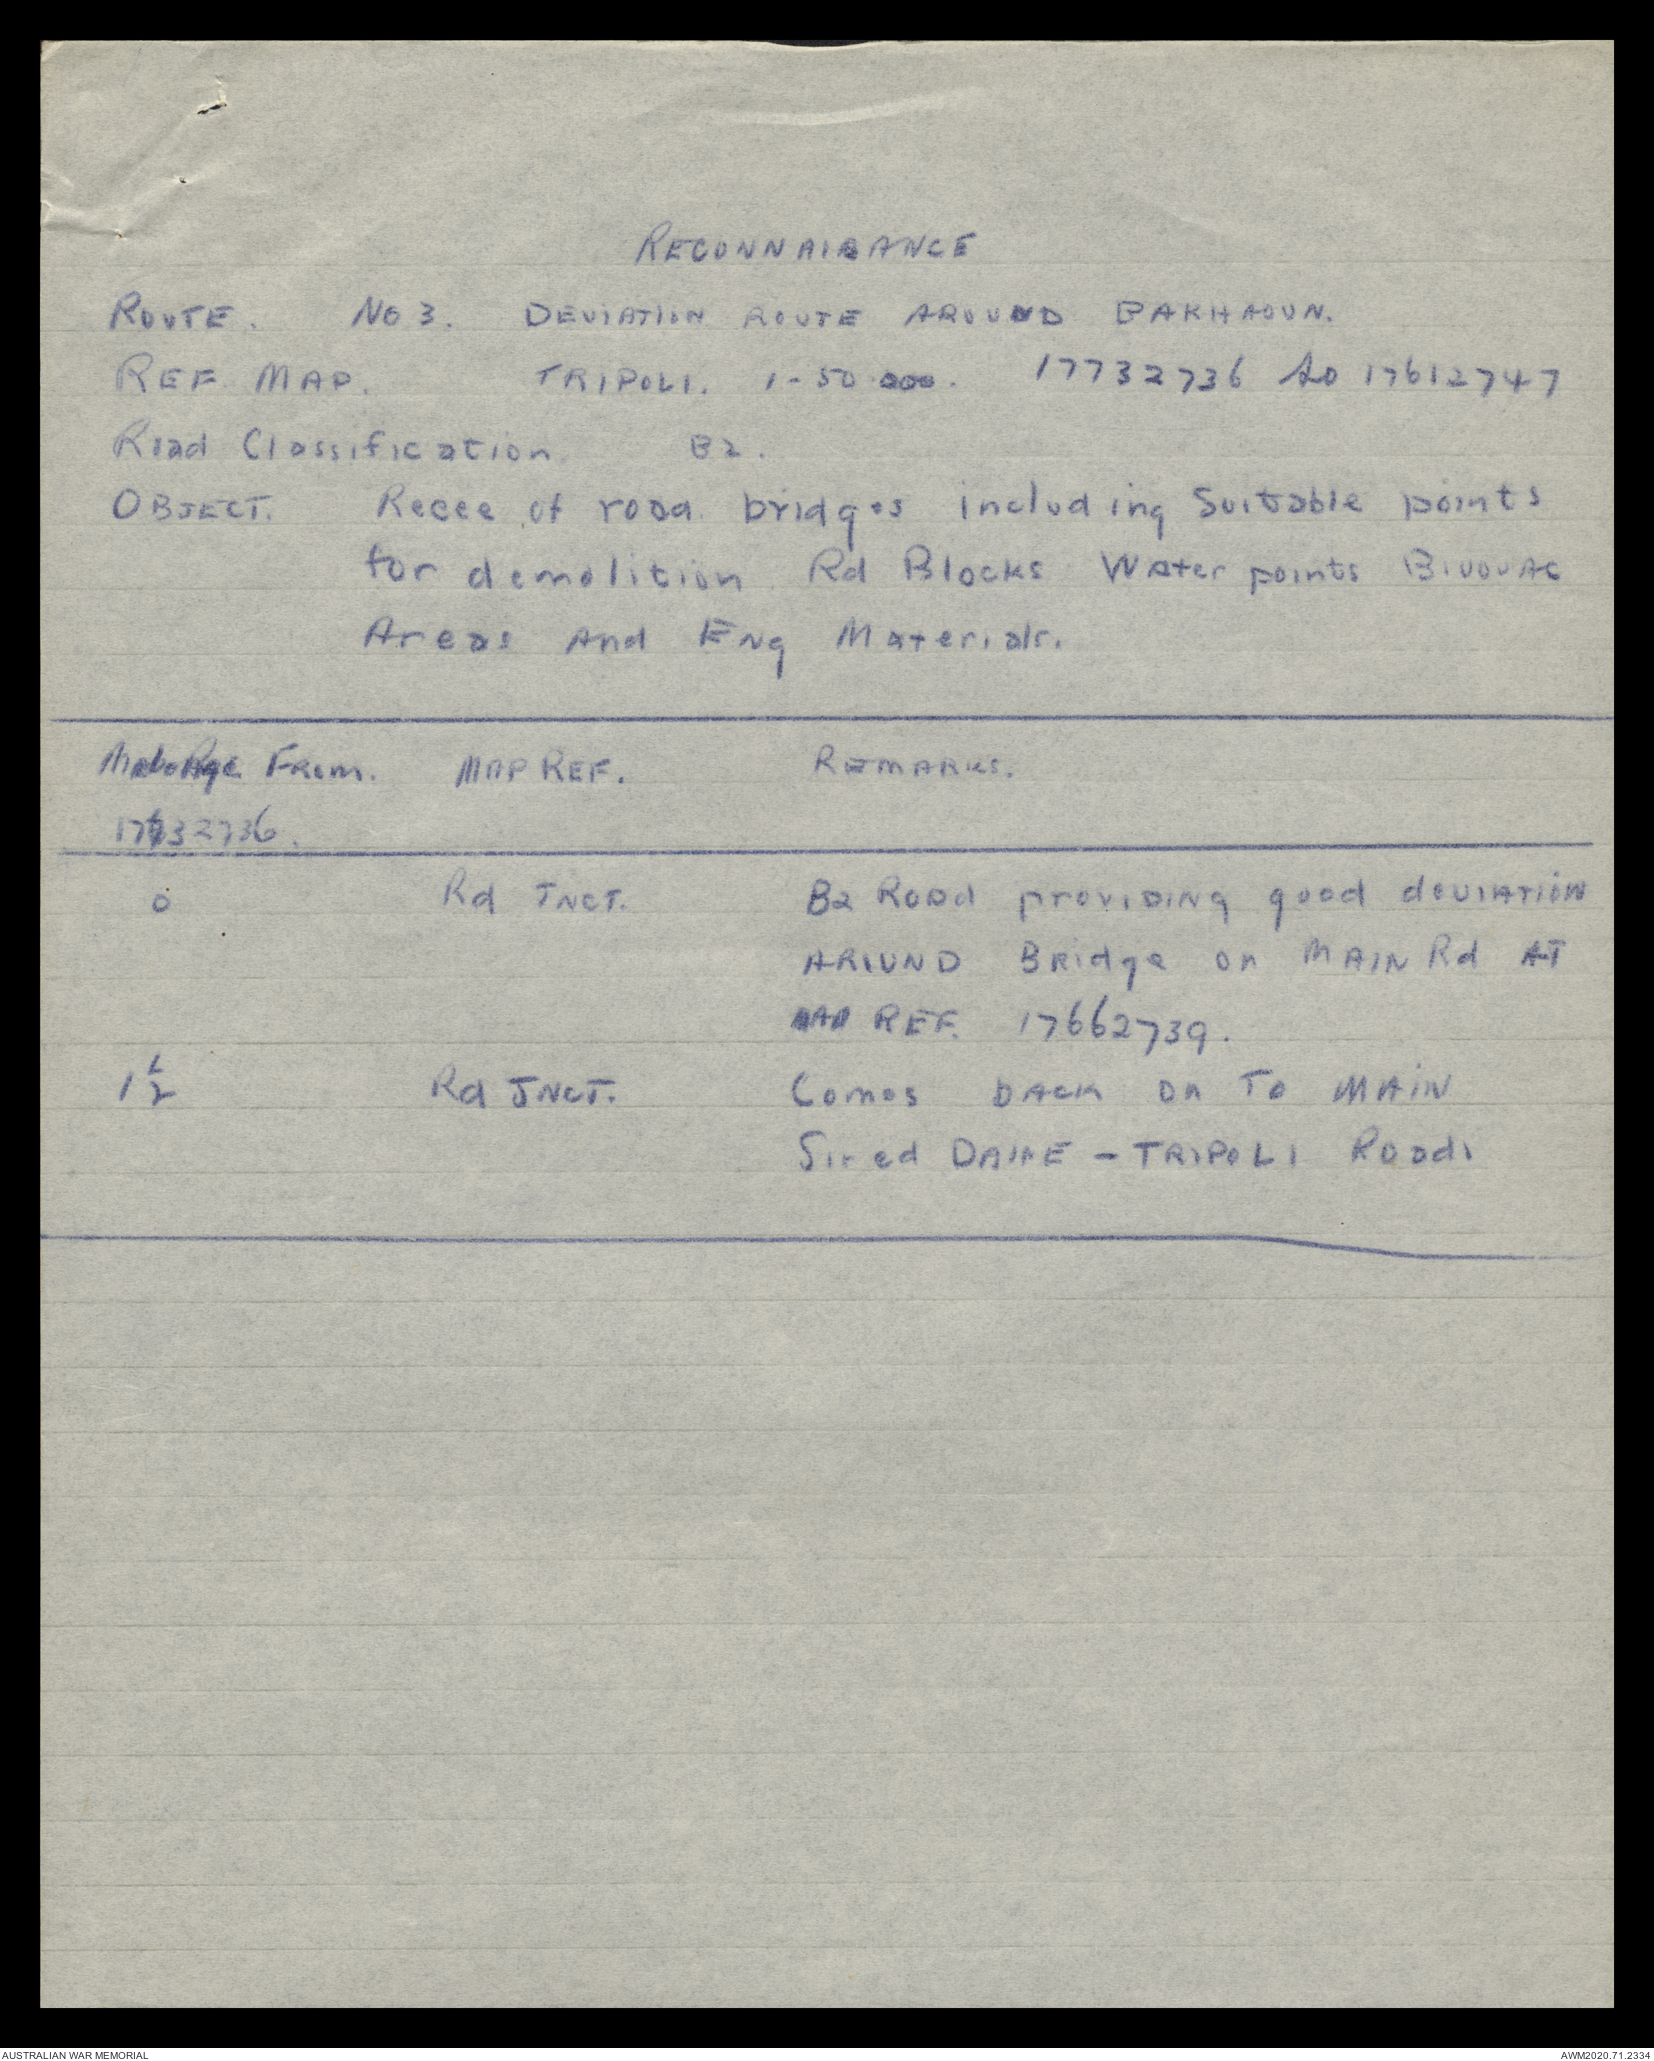 RECONNAISANCE
ROUTE. NO 3. DEVIATION ROUTE AROUND BAKHAOUN.
REF. MAP. TRIPOLI. 1-50.000. 17732736 to 17612747
Road Classification B2.
OBJECT. Recce of road bridges including Suitable points
for demolition Rd Blocks Water points Bivouac
Areas And Eng Materials.
Mileage From. MAP REF. REMARKS.
17732736.
0 Rd JNCT. B2 Road providing good deviation
AROUND Bridge on MAIN Rd AT
MAP REF. 17662739.
1½ Rd JNCT. Comes back on To MAIN
Sired DAINE - TRIPOLI Road.
AUSTRALIAN WAR MEMORIAL
AWM2020.71.2334